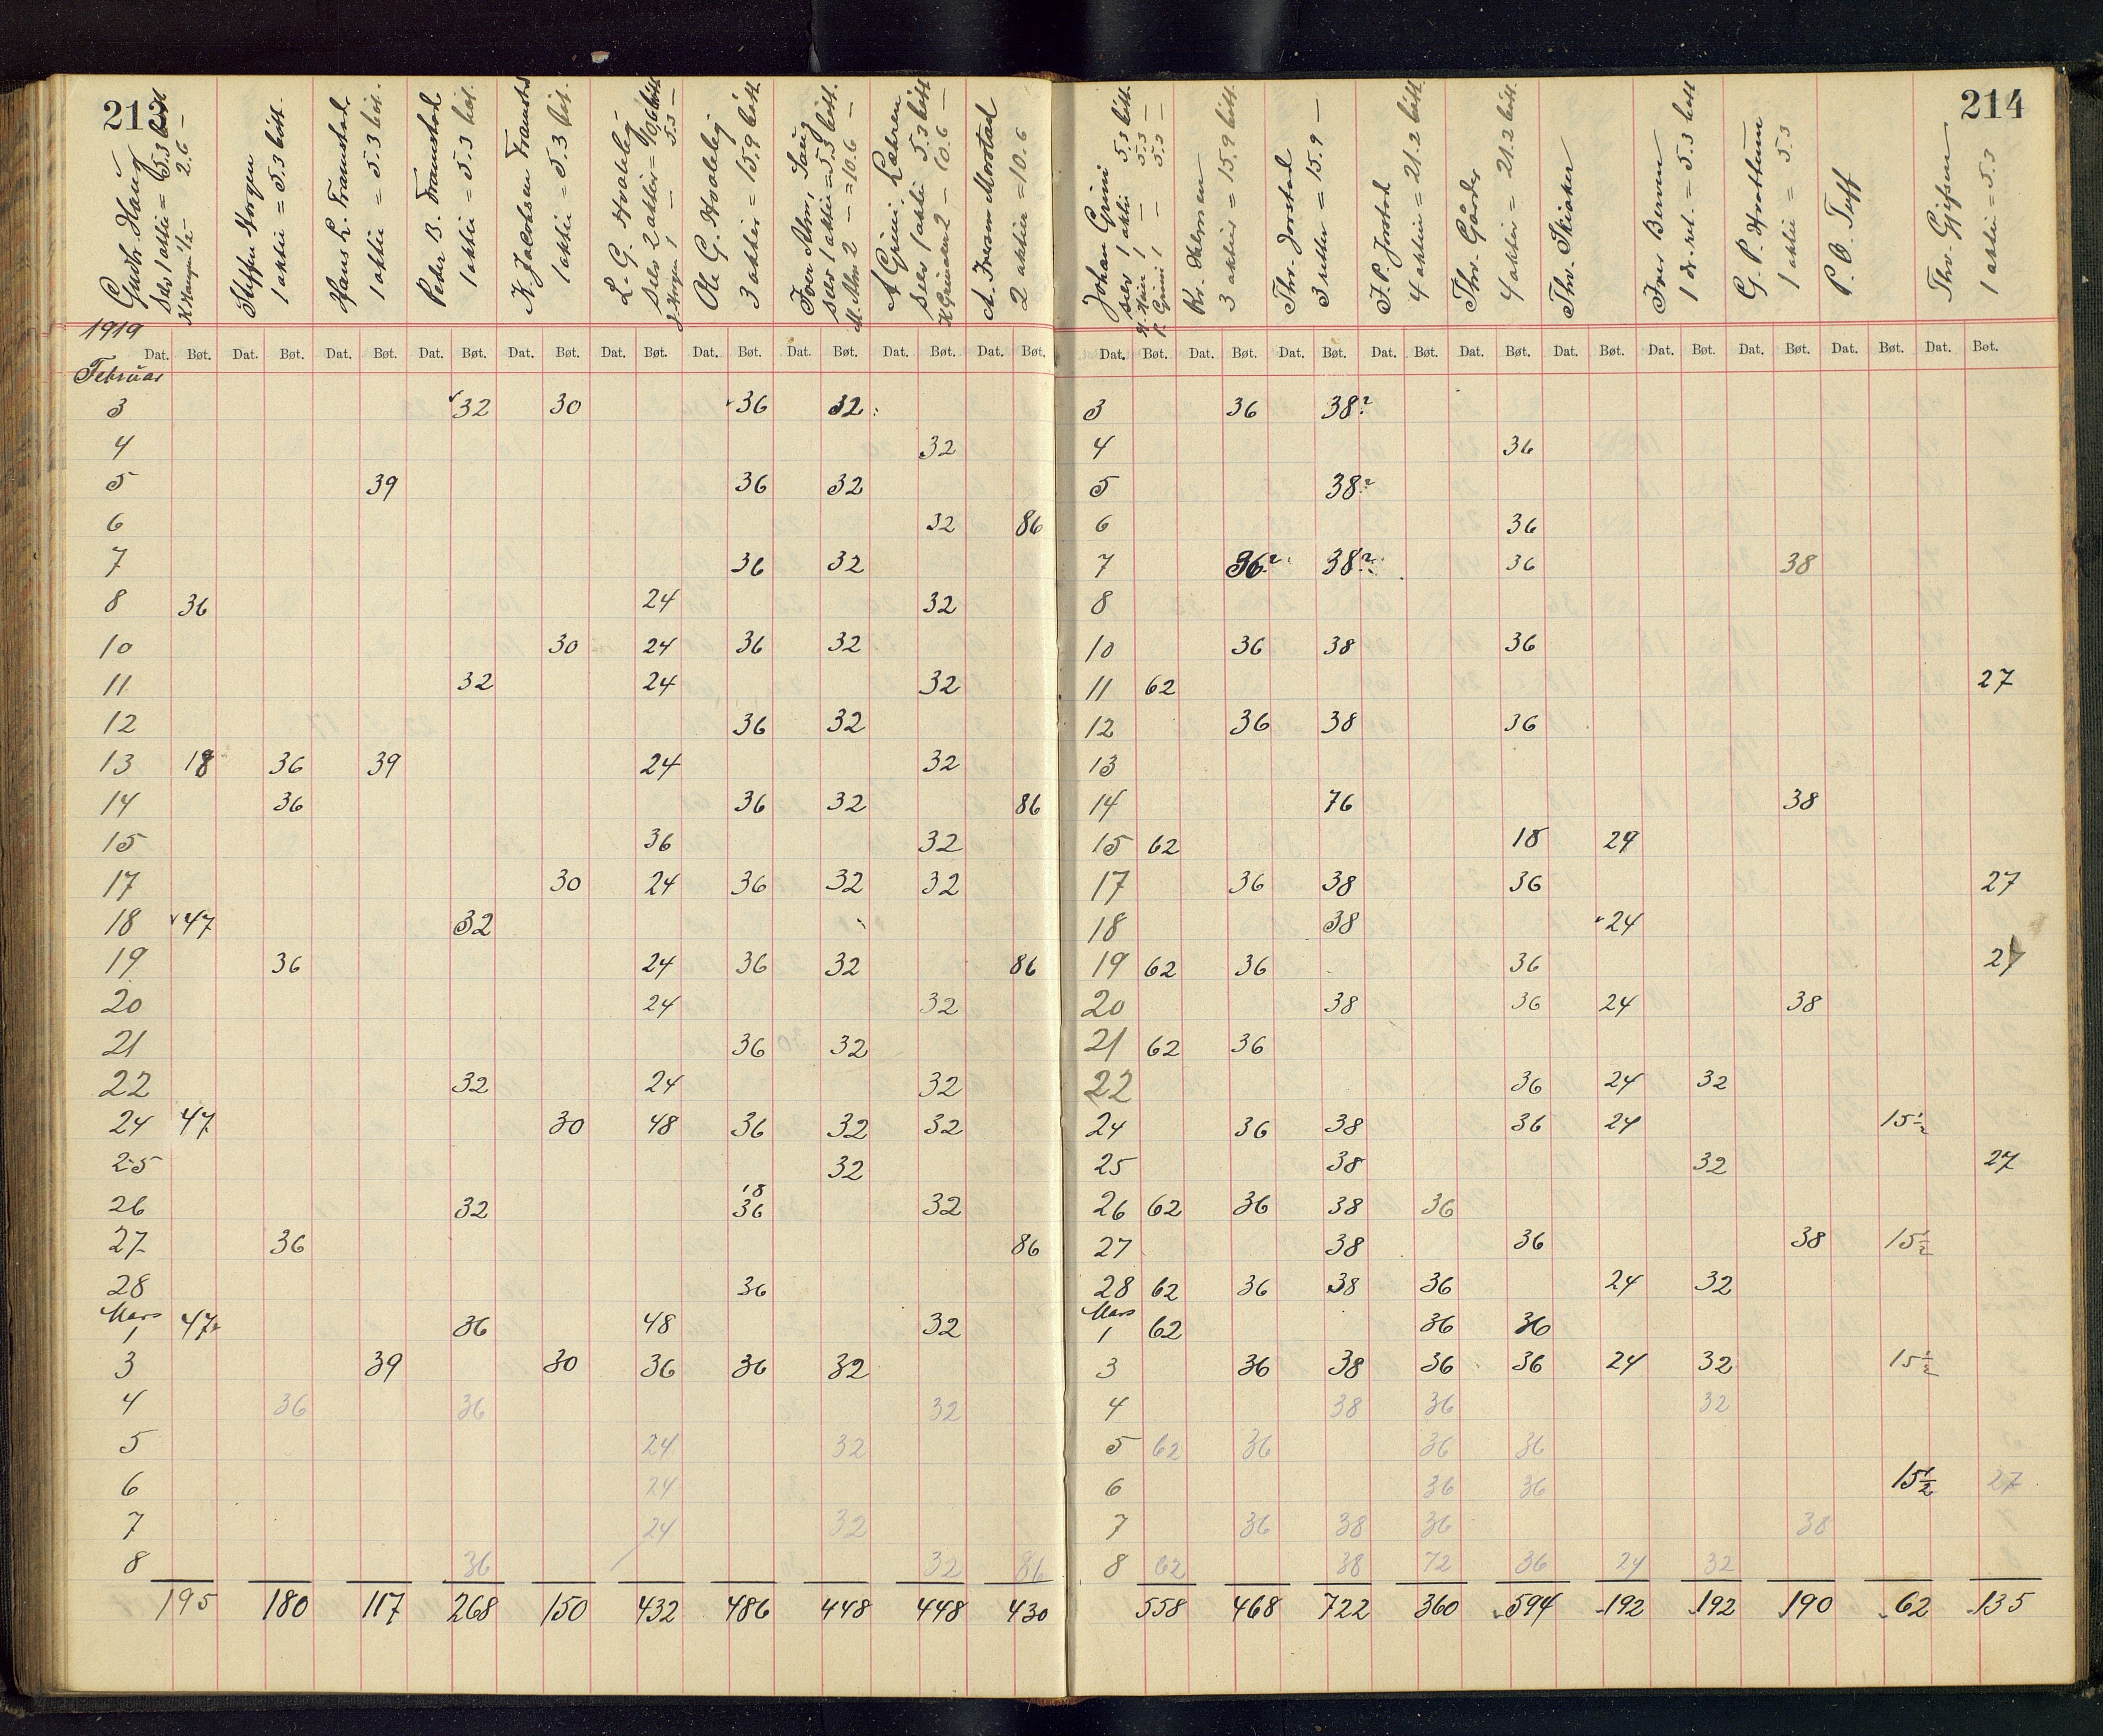 213
Guth. Haug
Selv 1 aktie = 5.3 bøtt
K Haugen 1/2 - 2.6 -
Steffen Horgen
1 aktie = 5.3 bøtt.
Hans L. Framstad
1 aktie = 5.3 bøt.
Peder B. Framstad
1 aktie = 5.3 bøt.
K. Jacobsen Framstad
1 aktie = 5.3 bøt.
L. G.
Selv 2 aktier = 10,6 bøtt
J. Horgen 1 - - 5.3 -
Ole G.
3 aktier = 15.9 bøtt.
Iver Alm, Saug
Selv 1 aktie = 5.3 bøtt.
M. Alm 2 - = 10.6 -
A Grini, Lækren
Selv 1 aktie 5.3 bøtt
2 - 10.6 -
A. Morstad
2 aktier = 10.6
1919
Dat. Bøt. Dat. Bøt. Dat. Bøt. Dat. Bøt. Dat. Bøt. Dat. Bøt. Dat. Bøt. Dat. Bøt. Dat. Bøt. Dat. Bøt.
Februar
3 32 30 36 32
4 32
5 39 36 32
6 32 86
7 36 32
8 36 24 32
10 30 24 36 32
11 32 24 32
12 36 32
13 18 36 39 24 32
14 36 36 32 86
15 36 32
17 30 24 36 32 32
18 47 32
19 36 24 36 32 86
20 24 32
21 36 32
22 32 24 32
24 47 30 48 36 32 32
25 32
18
26 32 36 32
27 36 86
28 36
Mars
1 47 36 48 32
3 39 30 36 36 32
4 36 36 32
5 24 32
6 24
7 24 32
8 36 32 86
195 180 117 268 150 432 486 448 448 430
214
Johan Grini 5.3 bøtt.
Selv 1 aktie 5.3 -
1 - 5.3 -
P. Grini 1 -
Kr.
3 aktier = 15.9 bøtt.
Thv. Jorstad
3 aktier = 15.9 -
J. P. Jorstad
4 aktier = 21.2 bøtt
Thv. Gårder
4 aktier = 21.2 bøtt.
Thv. Skiaker
Iver Berven
1 dr. ret. = 5.3 bøtt
G. P.
1 aktie = 5.3
P. O. Tuff
Thv.
1 aktie = 5.3
Dat. Bøt. Dat. Bøt. Dat. Bøt. Dat. Bøt. Dat. Bøt. Dat. Bøt. Dat. Bøt. Dat. Bøt. Dat. Bøt. Dat. Bøt.
3 36 38?
4 36
5 38?
6 36
7 36? 38? 36 38
8
10 36 38 36
11 62 27
12 36 38 36
13
14 76 38
15 62 18 24
17 36 38 36 27
18 38 24
19 62 36 36 27
20 38 36 24 38
21 62 36
22 36 24 32
24 36 38 36 24 15½
25 38 32 27
26 62 36 38 36
27 38 36 38 15½
28 62 36 38 36 24 32
Mars
1 62 36 36
3 36 38 36 36 24 32 15½
4 38 36 32
5 62 36 36 36
6 36 36 15½ 27
7 36 38 36 38
8 62 38 72 36 24 32
558 468 722 360 594 192 192 190 62 135